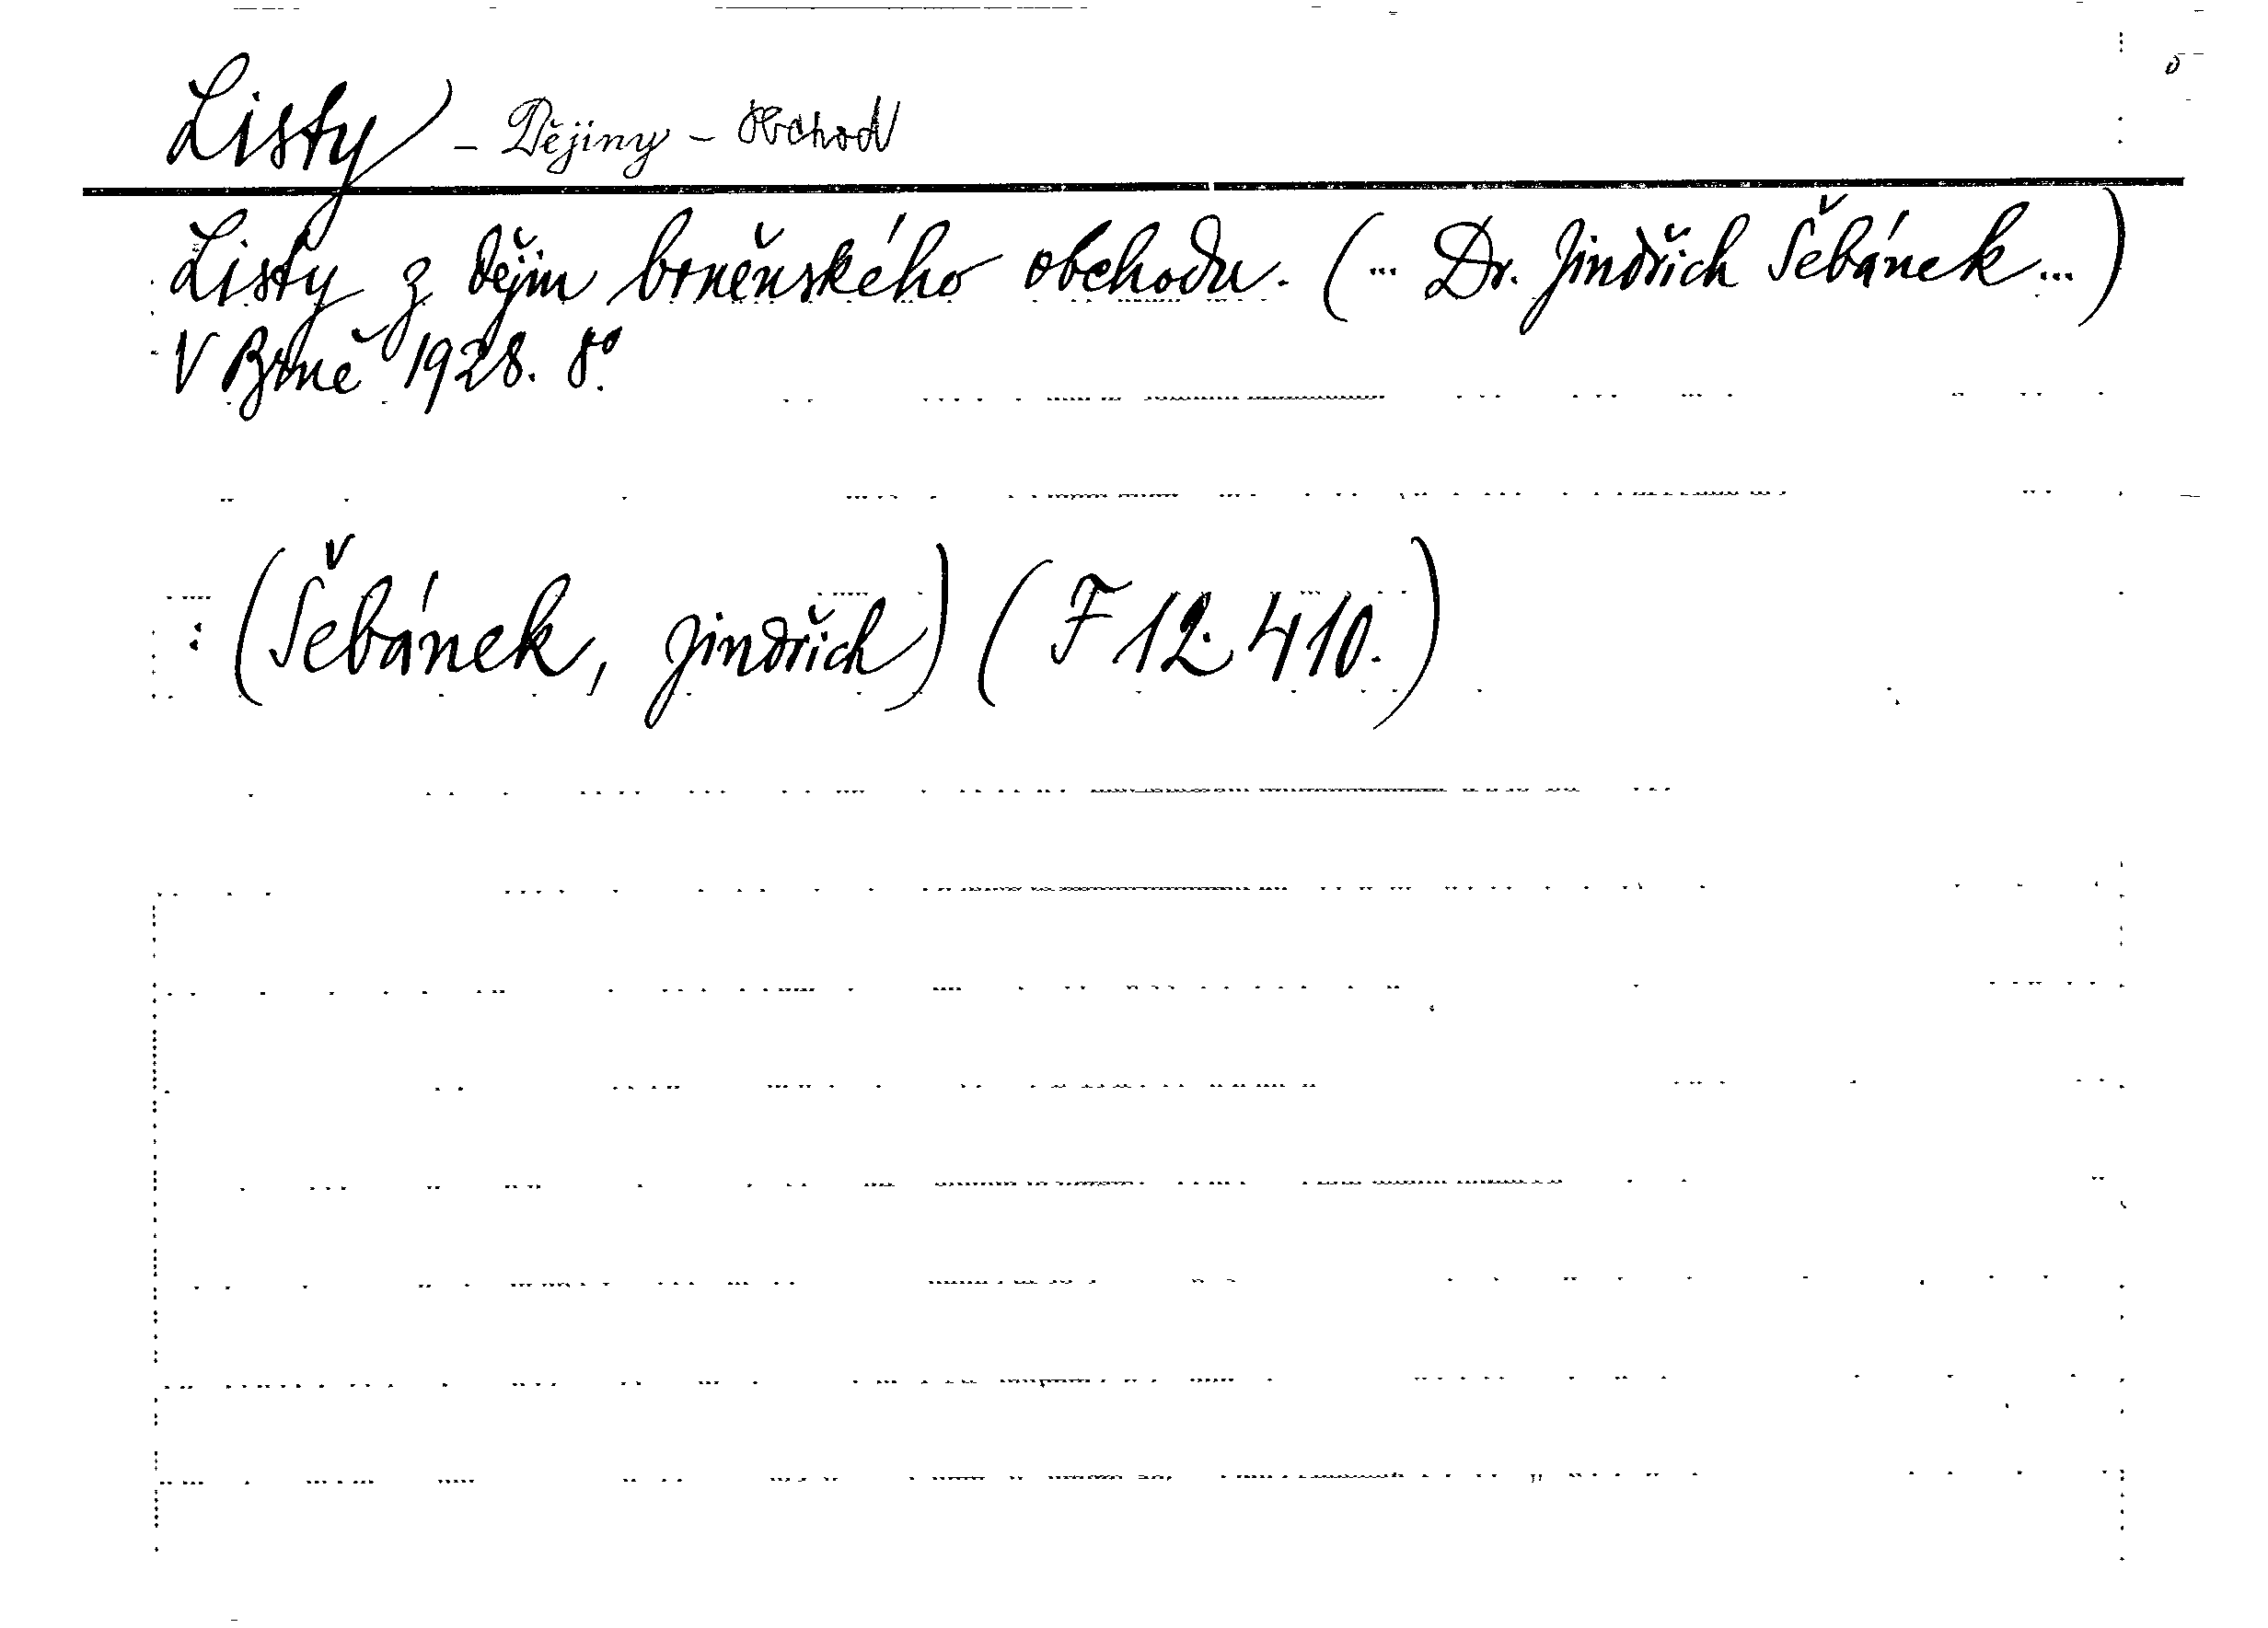 Listy - Dějiny - Obchod
Listy z dějin brněnského obchodu. (... Dr. Jindřich Šebánek ...)
V Brně 1928. 8º.
: (Šebánek, Jindřich) (F 12.410.)